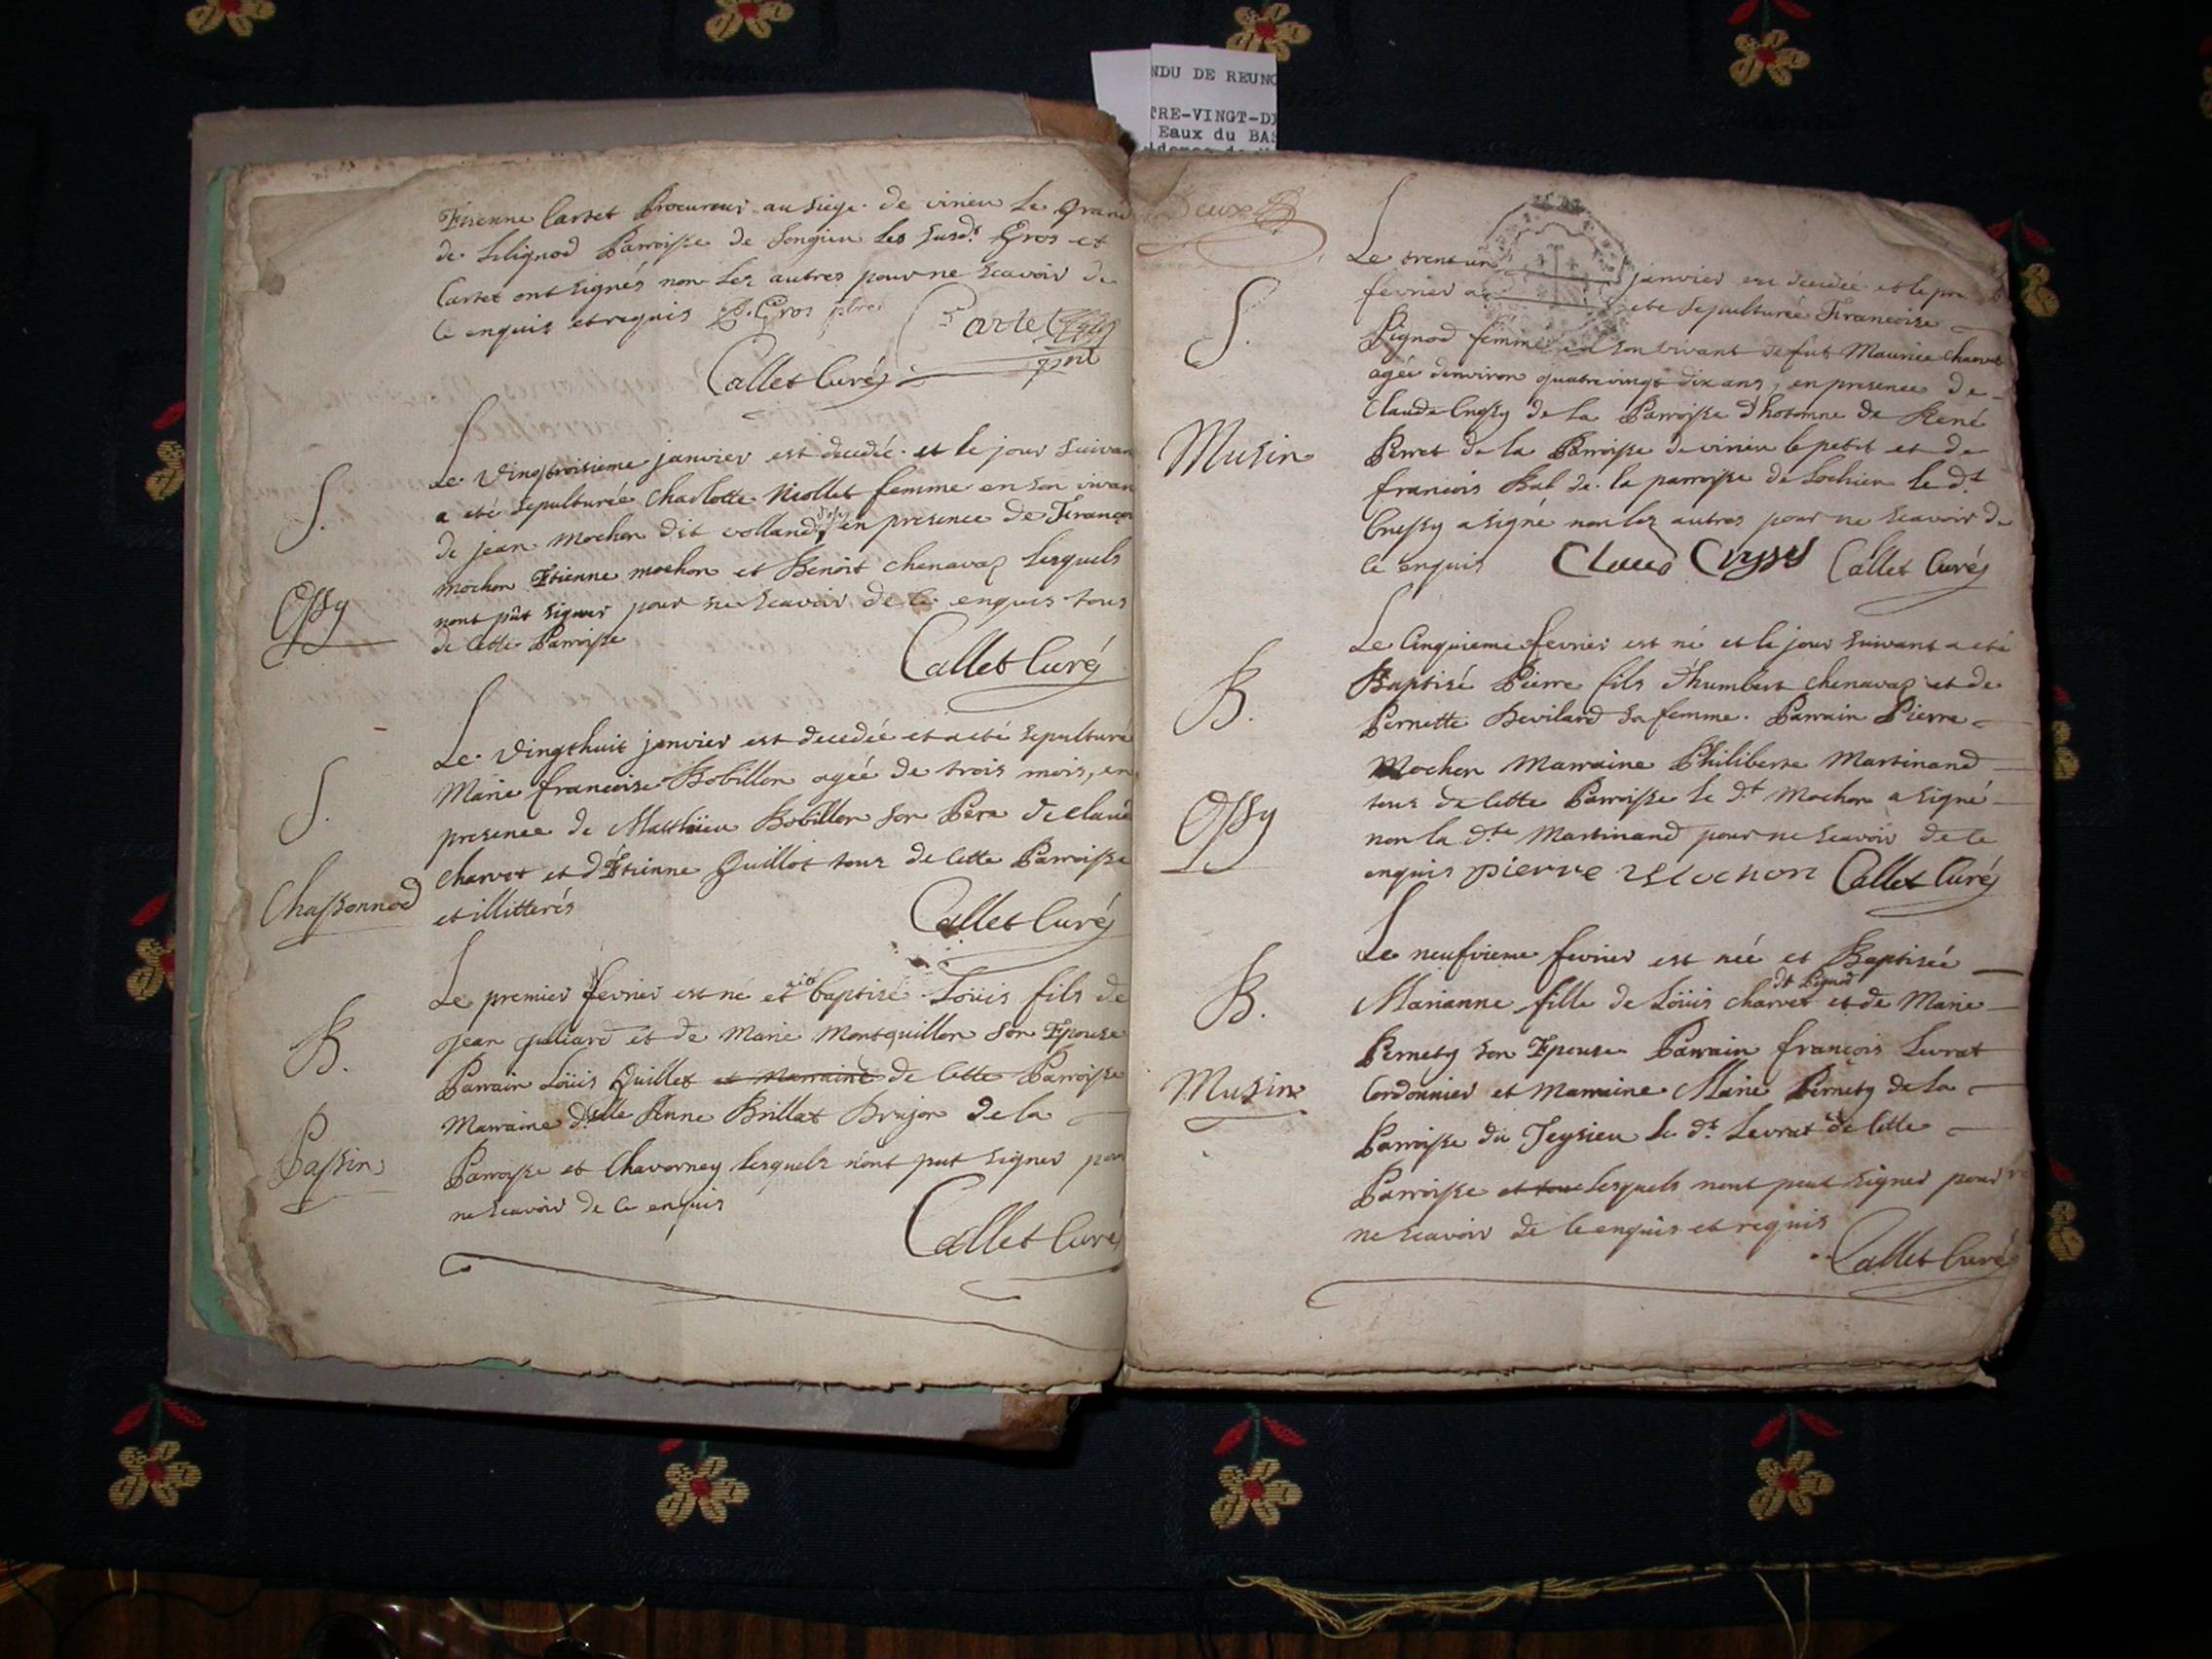 NDU DE REUNO
TRE-VINGT-DI
Eaux du BAS
Etienne Cartet Procureur au siege de virieu le Grand
de Lilignod Parroisse de Songieu les susds Gros et
Cartet ont signés non les autres pour ne scavoir de
ce enquis et requis Gros ptre Cartet
Callet Curé
S.
Ossy
Le vingtroisieme janvier est decedée et le jour suivan
a eté sepulturée Charlotte Niollet femme en son vivan
de jean mochon dit volland en presence de Francois
mochon Etienne mochon et Benoit chenavaz lesquels
nont pût signer pour ne scavoir de ce enquis tous
de cette Parroisse
Callet Curé
S.
Chassonnod
Le vingthuit janvier est decedée et a eté sepulturé
Marie francoise Bobillon agée de trois mois, en
presence de Matthieu Bobillon son Pere de claud
charvet et d'Etienne Quillot tous de cette Parroisse
et illitterés
Callet Curé
B.
Passin
Le premier fevrier est né et a eté baptisé Loüis fils de
jean juliard et de Marie Montquillon son Epouse
Parrain Loüis Quillet et Marraine de cette Parroisse
Marraine d.elle Anne Brillat Brujon de la
Parroisse et Chavorney lesquels n'ont put signer pour
ne scavoir de ce enquis
Callet Curé
Deux
S.
Musin
Le trent un janvier est decedée et le pr
fevrier a eté sepulturée Francoise
Pignod femme en son vivant de fut Maurice charvet
agée d'environ quatrevingt dix ans, en presence de
Claude Cussy de la Parroisse d'hotonne de René
Perret de la Parroisse de virieu le petit et de
francois Bal de la parroisse de Lochieu le dt
Cussy a signé non les autres pour ne scavoir de
ce enquis Claud Cussy Callet Curé
B.
Ossy
Le Cinquieme fevrier est né et le jour suivant a eté
Baptisé Pierre fils d'humbert chenavaz et de
Pernette Bevilard sa femme. Parrain Pierre
Mochon Marraine Philiberte Martinand
tous de cette Parroisse le dt Mochon a signé
non la dte Martinand pour ne scavoir de ce
enquis pierre Mochon Callet Curé
B.
Musin
Le neufvieme fevrier est née et Baptisée
Marianne fille de Loüis charvet dt Pignod et de Marie
Pernety son Epouse Parrain françois Levrat
Cordonnier et Marraine Marie Pernety de la
Parroisse du Teysieu le dt Levrat de cette
Parroisse et tous lesquels nont peut signer pour
ne scavoir de ce enquis et requis
Callet Curé